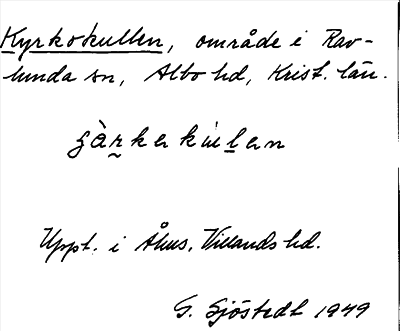 Kyrkokullen, område i Rav-
lunda sn, Albo hd, Krist. län.
Uppt. i Åhus, Villands hd.
G. Sjöstedt 1949